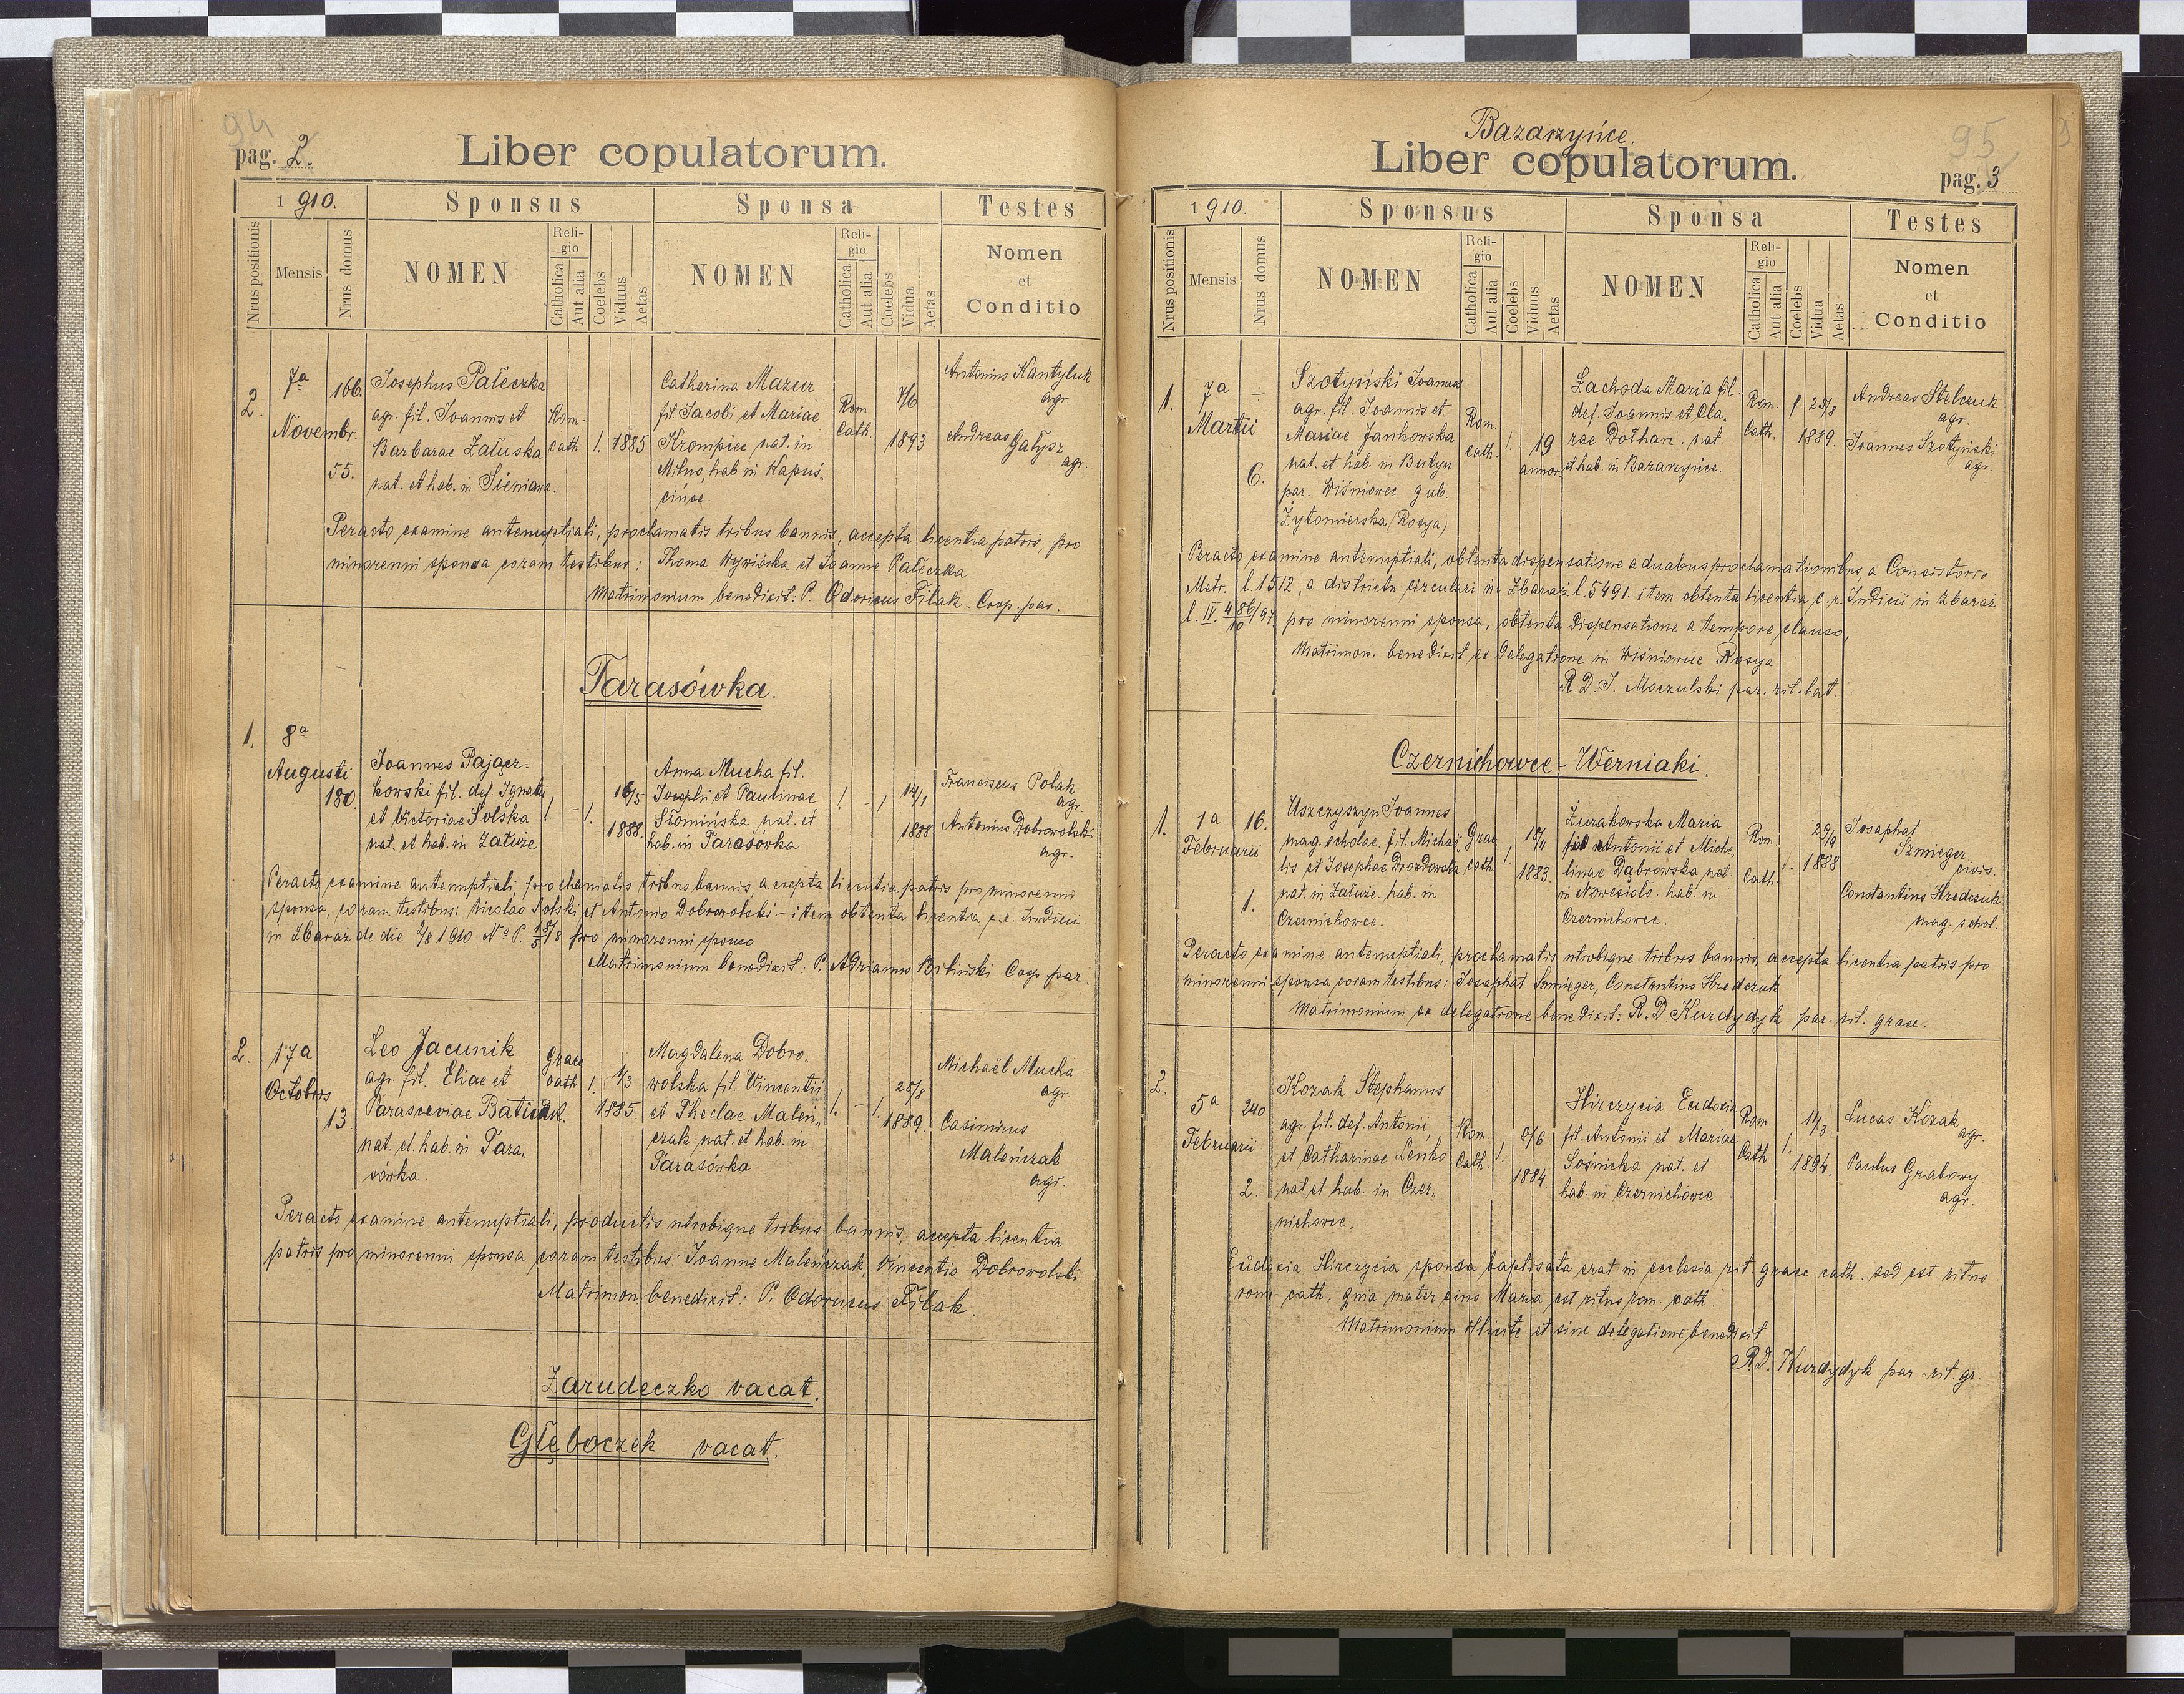 94
pag. 2.
Liber copulatorum.
1910.
Sponsus
Sponsa
Testes
Nrus positionis
Mensis
Nrus domus
NOMEN
Religio
Catholica
Aut alia
Coelebs
Viduus
Aetas
NOMEN
Religio
Catholica
Aut alia
Coelebs
Vidua
Aetas
Nomen
et
Conditio
2.
7a
Novembr.
166.
55.
Josephus Pałeczka
agr. fil. Joannis et
Barbarae Załuska
nat. et hab. in Sieniawa.
Rom.
cath
1.
1885
Catharina Mazur
fil. Jacobi et Mariae
Krompiec nat. in
Milno, hab in Kapuś-
cińce.
Rom
Cath.
7/6
1893
Antonius Kantyluk
agr.
Andreas Gałysz
agr.
Peracto examine antenuptiali, proclamatis tribus bannis, accepta licentia patris, pro
minorenni sponsa coram testibus: Thoma Wywiórka et Joanne Pałeczka
Matrimonium benedixit: P. Odoricus Filak Coop. par.
Tarasówka.
1.
8a
Augusti
180.
Joannes Pającz-
kowski fil. def Ignatii
et Victoriae Solska
nat. et hab. in Załuże
1
-
1.
16/5
1888.
Anna Mucha fil.
Josephi et Paulinae
Słomińska nat. et
hab. in Tarasówka
1
-
1
14/1
1888
Franciscus Polak
agr.
Antonius Dobrowolski
agr.
Peracto examine antenuptiali, proclamatis tribus bannis, accepta licentia patris pro minorenni
sponsa, coram testibus: Nicolao Solski et Antonio Dobrowolski - item obtenta licentia c.r. Indicii
in Zbaraż de die 2/8 1910 No P. pro minorenni sponso
Matrimonium benedixit: P. Adrianus Biliński Coop par.
2.
17a
Octobris
13.
Leo Jacunik
agr. fil. Eliae et
Parasceviae Batiuk.
nat. et. hab. in Tara,
sówka
Graec
cath
1.
1/3
1885.
Magdalena Dobro.
wolska fil. Vincentii
et Theclae Maleń,
czak nat. et hab. in
Tarasówka
1.
-
1.
28/8
1889.
Michaël Mucha
agr.
Casimirus
Maleńczak
agr.
Peracto examine antenuptiali, productis utrobique tribus bannis, accepta licentia
patris pro minorenni sponsa coram testibus: Joanne Maleńczak, Vincentio Dobrowolski
Matrimon benedixit: P. Odoricus Filak.
Zarudeczko vacat.
Głęboczek vacat.
Bazarzyńce.
Liber copulatorum.
95
pag. 3
1910.
Sponsus
Sponsa
Testes
Nrus positionis
Mensis
Nrus domus
NOMEN
Religio
Catholica
Aut alia
Coelebs
Viduus
Aetas
NOMEN
Religio
Catholica
Aut alia
Coelebs
Vidua
Aetas
Nomen
et
Conditio
1.
7a
Martii
÷
6.
Szotyński Joannes
agr. fil. Joannis et
Mariae Jankowska
nat. et. hab. in Butyn
par. Wiśniowec gub.
Żytomierska (Rosya)
Rom.
Cath.
1.
19
annor.
Zachoda Maria fil.
def Joannis et Cla,
rae Dołhan. nat.
et hab. in Bazarzyńce.
Rom.
Cath.
1
25/8
1889.
Andreas Stelczuk
agr.
Joannes Szotyński
agr.
Peracto examine antenuptiali, obtenta dispensatione a duabus proclamationibus a Consistorio
Metr. l. 1512, a districtu circulari in Zbaraż l. 5491. item obtenta licentia c.r. Indicii in Zbaraż
pro minorenni sponsa, obtenta dispensatione a tempore clauso,
Matrimon. benedixit ex delegatione in Wiśniowiec Rosya
R.D. J. Moczulski par. rit. lat.
Czernichowce - Werniaki.
1.
1a
Februarii
16.
1.
Uszczyszyn Joannes
mag. scholae. fil. Michaë,
lis et Josephae Drozdowska
nat. in Załuże. hab. in
Czernichowce.
Graec
Cath.
1.
18/11
1883.
Żurakowska Maria
fil Antonii et Micha,
linae Dąbrowska nat
in Nowesioło. hab. in
Czernichowce.
Rom.
Cath.
1.
29/9
1888
Josaphat
Szmieger
civis.
Constantius Hredczuk
mag. schol.
Peracto examine antenuptiali, proclamatis utrobique tribus bannis, accepta licentia patris pro
minorenni sponsa coram testibus: Josaphat Szmieger, Constantius Hredczuk
Matrimonium ex delegatione benedixit: R.D Kurdydyk par. rit. graec.
2.
5a
Februarii
240
2.
Kozak Stephanus
agr. fil. def. Antonii
et Catharinae Leńko
nat et hab. in Czer,
nichowce.
Rom.
Cath.
1.
8/6
1884
Hirczycia Eudoxia
fil. Antonii et Mariae
Sośnicka nat. et
hab. in Czernichowce
Rom.
Cath
1.
11/3
1894.
Lucas Kozak
agr.
Paulus Grabowy
agr.
Eudoxia Hirczycia sponsa baptisata erat in ecclesia rit. graec cath. sed est ritus
rom-cath, quia mater eius Maria est ritus rom. cath.
Matrimonium illicite et sine delegatione benedixit
R.D. Kurdydyk par - rit. gr.